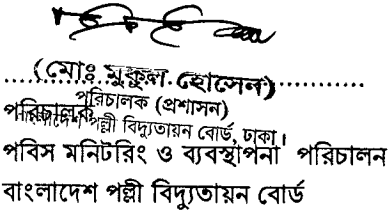 (মোঃ মুকুল হোসেন)
পরিচালক (প্রশাসন)
পরিচালক
বাংলাদেশ পল্লী বিদ্যুতায়ন বোর্ড, ঢাকা।
পবিস মনিটরিং ও ব্যবস্থাপনা পরিচালন
বাংলাদেশ পল্লী বিদ্যুতায়ন বোর্ড